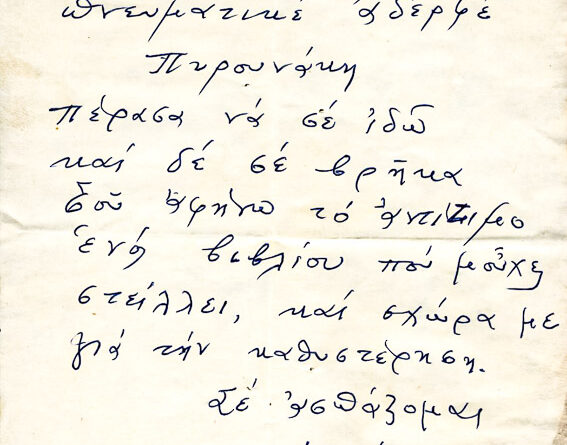 πνευματικέ ἀδερφέ
Πυρουνάκη
πέρασα νά σέ ἰδῶ
καί δέ σέ βρῆκα
Σοῦ ἀφήνω τό ἀντίτιμο
ἑνός βιβλίου πού μοὖχε
στείλλει, καί σχώρα με
γιά τήν καθυστέρηση.
Σέ ἀσπάζομαι